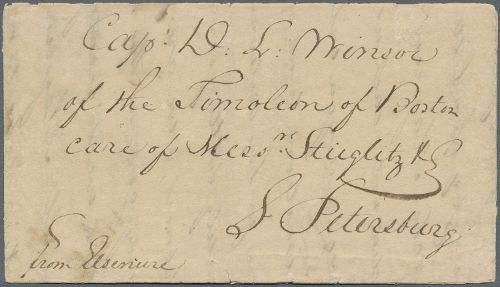 Cap. D. L. Winsor
of the Timoleon of Boston
care of Messrs. Stieglitz & Co
St Petersburg
from Elseniure